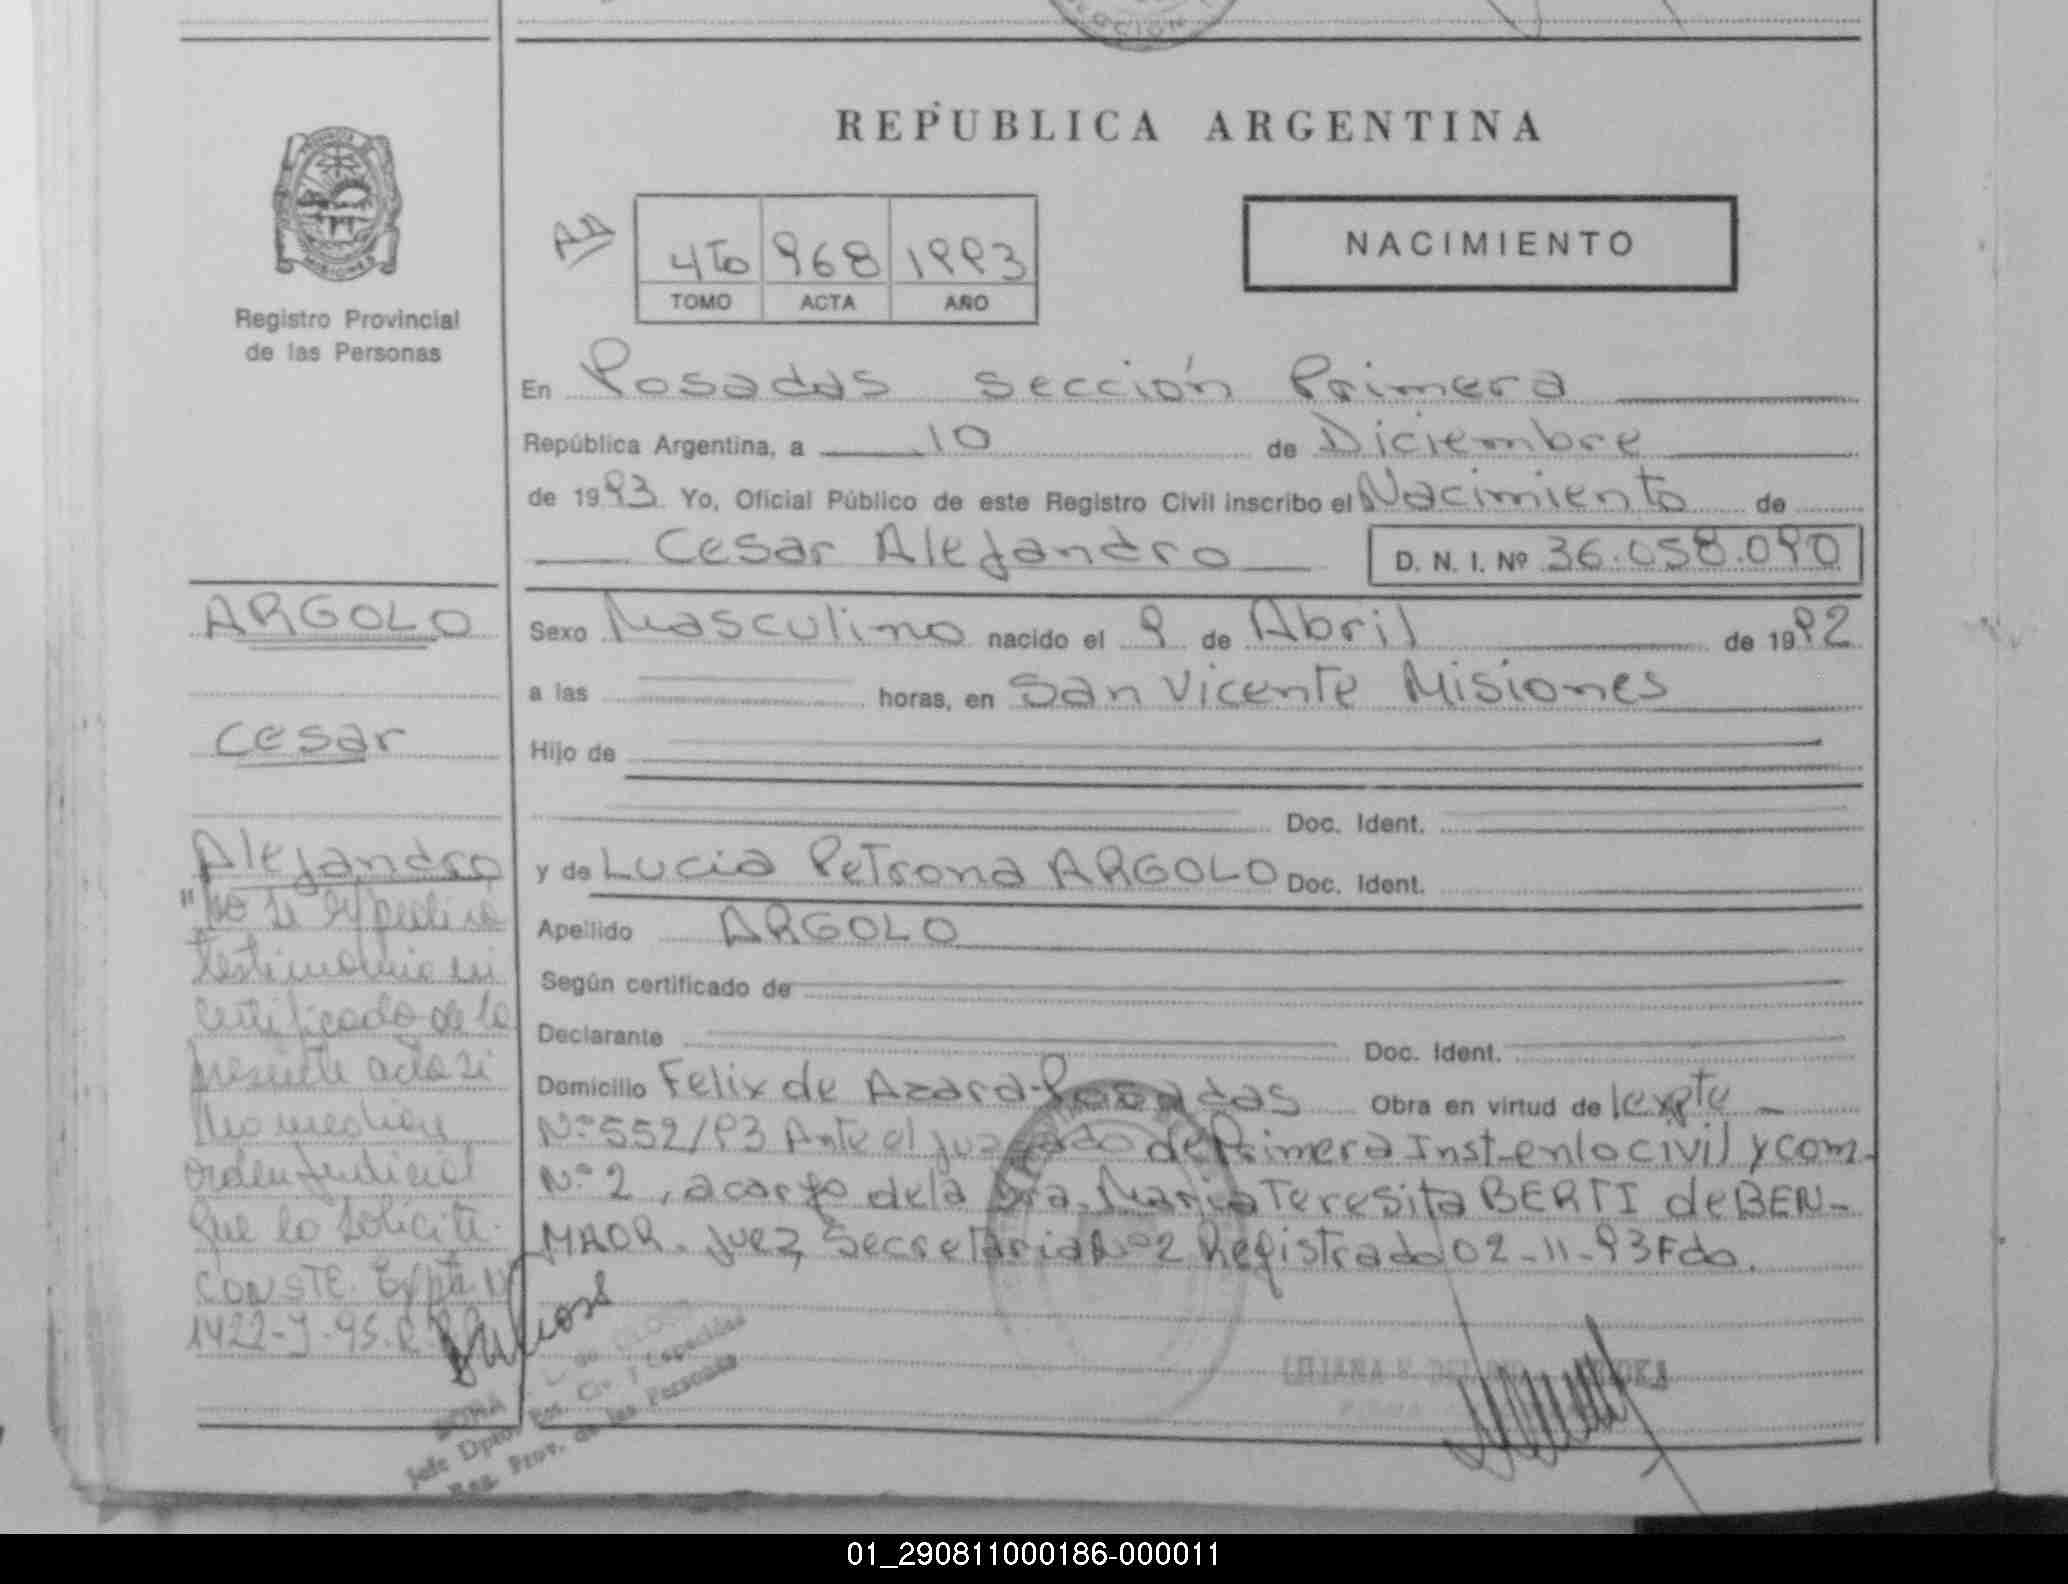 REPUBLICA ARGENTINA
4to 968 1993
TOMO ACTA AÑO
NACIMIENTO
Registro Provincial
de las Personas
En Posadas sección Primera
República Argentina, a 10 de Diciembre
de 1993 Yo, Oficial Público de este Registro Civil inscribo el Nacimiento de
Cesar Alejandro D. N. I. Nº 36.058.090
ARGOLO
Cesar
Alejandro
Sexo Masculino nacido el 9 de Abril de 1992
a las horas, en San Vicente Misiones
Hijo de
Doc. Ident.
y de Lucia Petrona ARGOLO Doc. Ident.
Apellido ARGOLO
Según certificado de
Declarante Doc. Ident.
Domicilio Felix de Azara-Posadas Obra en virtud de lexpte
Nº 552/93 Ante el juzgado de Primera Inst-en lo civil y com.
Nº 2, a cargo de la Dra. Maria Teresita BERTI de BEN-
MAOR. Juez, Secretaria Nº 2 Registrado 02-11-93 Fdo.
"No se expedirá
testimonio ni
certificado de la
presente acta si
no mediare
orden judicial
que lo solicite.
CONSTE. Expte. N
1422-J-95.R.
Jefe Dpto. Cap
Reg. Prov. de las Personas
LILIANA
01_290811000186-000011